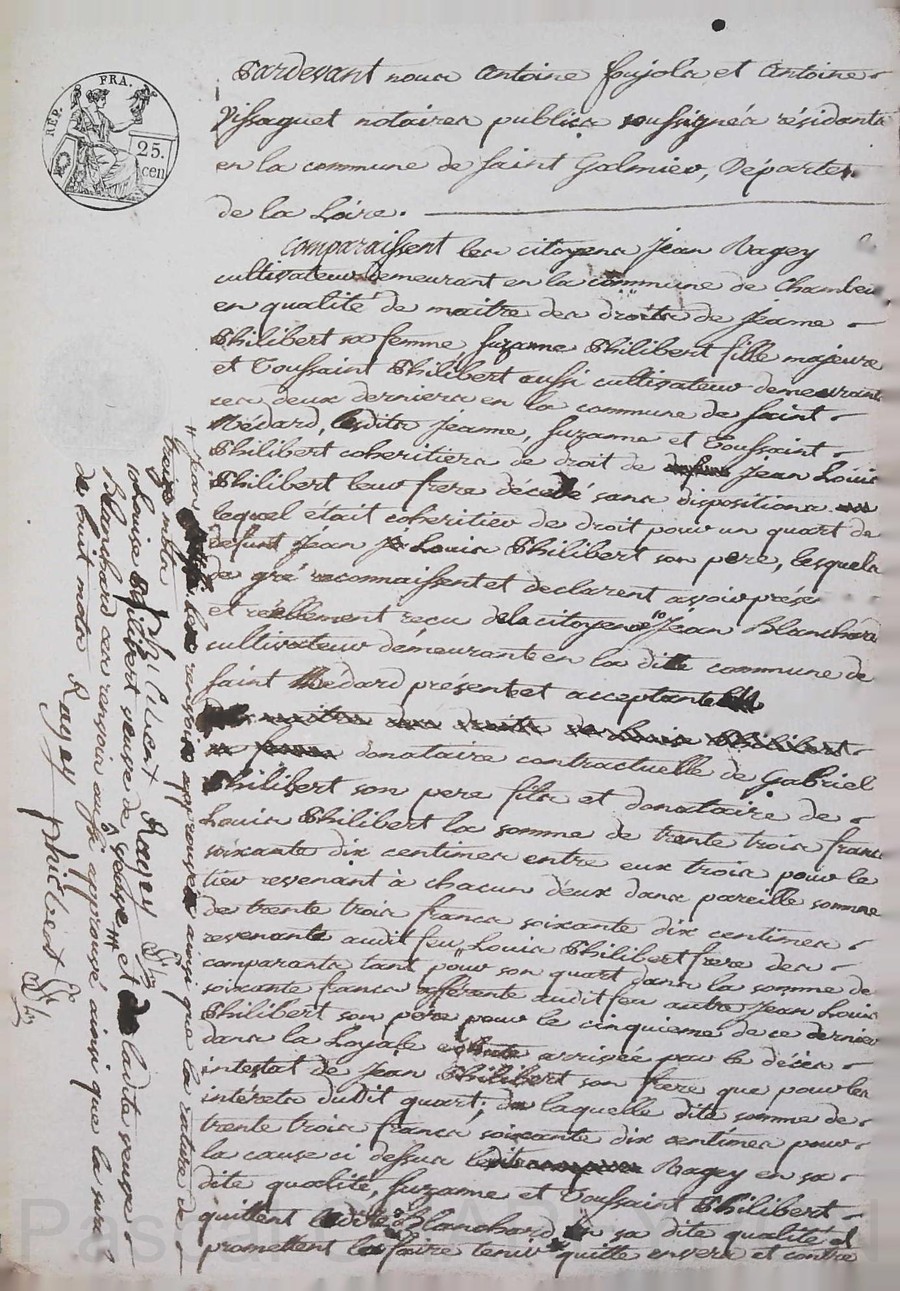 REP. FRA.
25.
cen
Pardevant nous Antoine Pujola et Antoine
Vissaguet notaires publics soussignés résidants
en la commune de Saint Galmier, Départem.
de la Loire.
Comparaissent les citoyens Jean Ragey
cultivateur demeurant en la commune de Chambeu
en qualité de maitre des droits de Jeanne
Philibert sa femme Suzanne Philibert fille majeure
et Toussaint Philibert aussi cultivateur demeurant
ces deux derniers en la commune de Saint
Médard, lesdits Jeanne, Suzanne et Toussaint
Philibert coheritiers de droit de Jean Louis
Philibert leur frere décedé sans dispositions
lequel etait coheritier de droit pour un quart de
defunt Jean Louis Philibert son pere, lesquels
de gré reconnaissent et declarent avoir présen
et réellement reçu de la citoyene Jean Blanchard
cultivateur demeurante en la dite commune de
Saint Médard présente et acceptante
maitre des droits de Louise Philibert
sa femme donataire contractuelle de Gabriel
Philibert son pere fils et donataire de
Louis Philibert la somme de trente trois francs
soixante dix centimes entre eux trois pour le
tier revenant à chacun d'eux dans pareille somme
de trente trois francs soixante dix centimes
revenante audit feu Louis Philibert frere des
comparants tant pour son quart dans la somme de
soixante francs afférente audit feu autre Jean Louis
Philibert son pere pour le cinquieme de ce dernier
dans la Loyale echute arrivée par le décès
intestat de Jean Philibert son frere que pour les
intérets dudit quart; de laquelle dite somme de
trente trois francs soixante dix centimes pour
la cause ci dessus Ragey en sa
dite qualité, Suzanne et Toussaint Philibert
quittent ladite Blanchard en sa dite qualité et
promettent la faire tenir quitte envers et contre
les renvois approuvés ainsi que la rature de
mots Philibert Ragey
Louise Philibert veuve de et ladite veuve
Blanchard ces renvois aussi approuvé ainsi que la
de huit mots Ragey Philibert